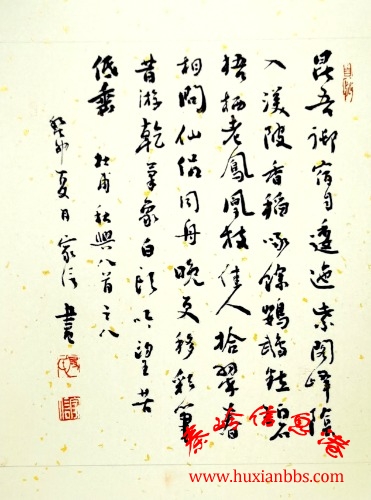 昆吾御宿自逶迤紫閣峰陰
入渼陂香稻啄餘鸚鵡粒碧
梧栖老鳳凰枝佳人拾翠春
相問仙侣同舟晚更移彩筆
昔游乾氣象白頭吟望苦
低垂
杜甫秋興八首之八
癸卯夏月家信書
秦岭信
www.huxianbbs.com